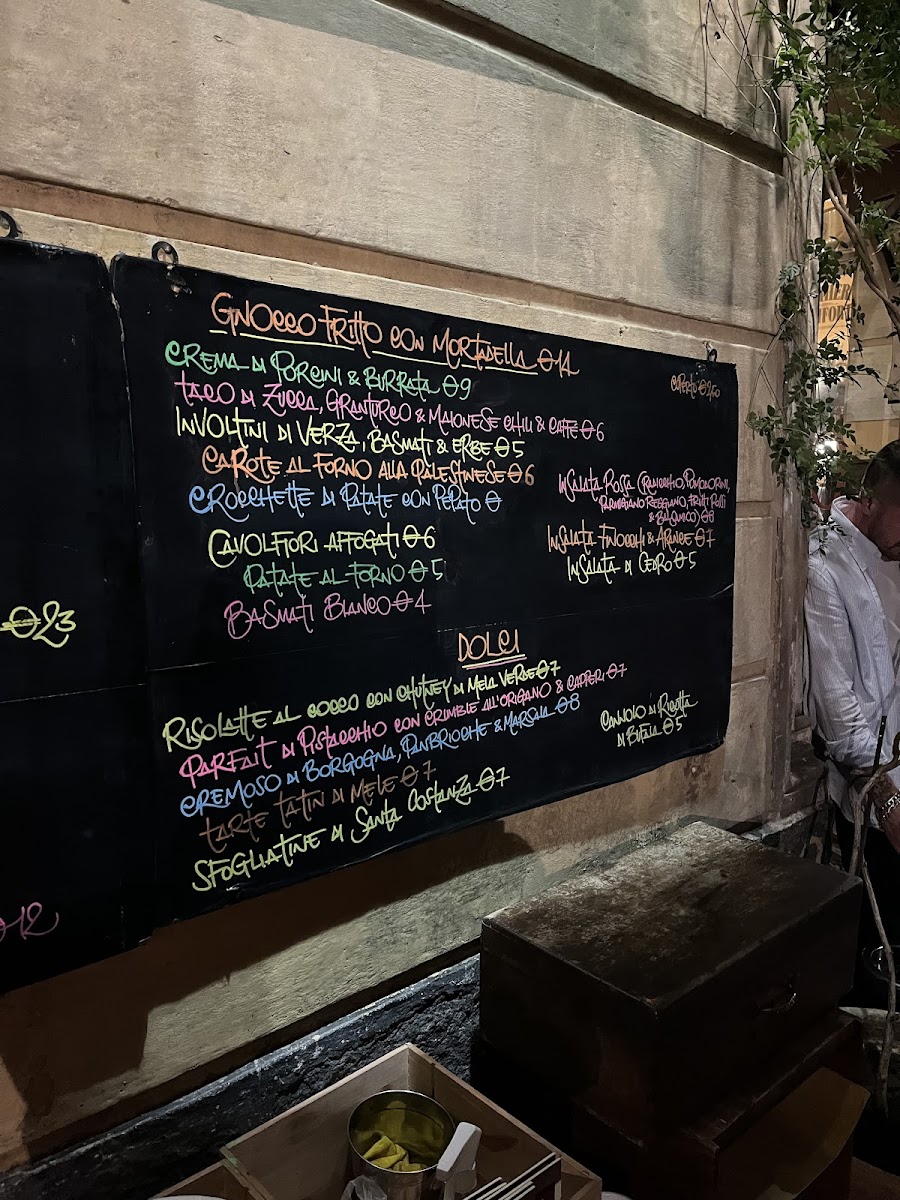 Gnocco Fritto con Mortadella €14
Crema di Porcini & Burrata €9
Taco di Zucca, Granturco & Maionese Chili & Caffe €6
Involtini di Verza, Basmati & Erbe €5
Carote al Forno alla Palestinese €6
Crocchette di Patate con Pepato €
Cavolfiori Affogati €6
Patate al Forno €5
Basmati Bianco €4
Coperto €2,50
Insalata Rossa (Radicchio, Pomodorini,
Parmigiano Reggiano, Frutti Rossi
& Balsamico) €8
Insalata Finocchi & Arance €7
Insalata di Cedro €5
Dolci
Risolatte al Cocco con Chutney di Mela Verde €7
Parfait di Pistacchio con Crimble all'Origano & Capperi €7
Cremoso di Borgogna, Panbrioche & Marsala €8
Tarte Tatin di Mele €7
Sfogliatine di Santa Costanza €7
Cannolo di Ricotta
di Bufala €5
€23
€12